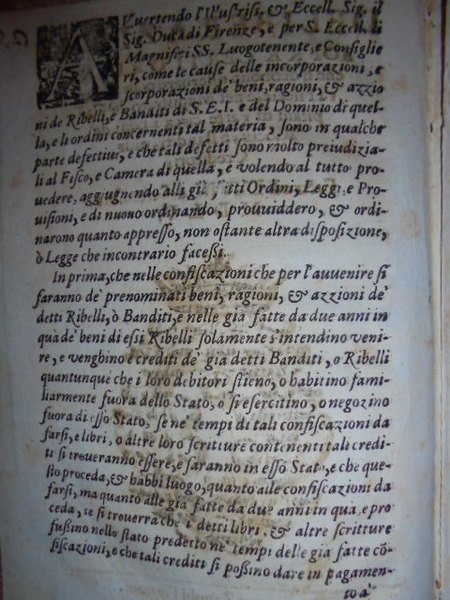 AVuertendo l'Illustriss. & Eccell. Sig. il
Sig. Duca di Firenze, e per S. Eccell. li
Magnifici SS. Luogotenente, e Consiglie
ri, come le cause delle incorporazioni, e
scorporazioni de' beni, ragioni, & azzio
ni de Ribelli, e Banditi di S.E.I. e del Dominio di quel-
la, e li ordini concernenti tal materia, sono in qualche
parte defectiui, e che tali defetti sono molto preiudizia-
li al Fisco, e Camera di quella, e volendo al tutto pro-
uedere, aggiugnendo alli già fatti Ordini, Leggi, e Pro-
uisioni, e di nuouo ordinando, prouuiddero, & ordi-
narono quanto appresso, non ostante altra disposizione,
ò Legge che incontrario facessi.
In prima, che nelle confiscazioni che per l'auuenire si
faranno de' prenominati beni, ragioni, & azzioni de'
detti Ribelli, ò Banditi, e nelle già fatte da due anni in
quà de' beni di essi Ribelli solamente s'intendino veni-
re, e venghino e crediti de' già detti Banditi, o Ribelli
quantunque che i loro debitori stieno, o habitino fami-
liarmente fuora dello Stato, o si esercitino, o negozino
fuora di esso Stato, se ne' tempi di tali confiscazioni da
farsi, e libri, o altre loro scritture contenenti tali credi-
ti si troueranno essere, e saranno in esso Stato, e che que-
sto proceda, & habbi luogo, quanto alle confiscazioni da
farsi, ma quanto alle già fatte da due anni in qua, e pro
ceda, se si trouerra che i detti libri, & altre scritture
fußino nello stato predetto ne' tempi delle già fatte cõ-
fiscazioni, e che tali crediti si poßino dare in pagamen-
to a'